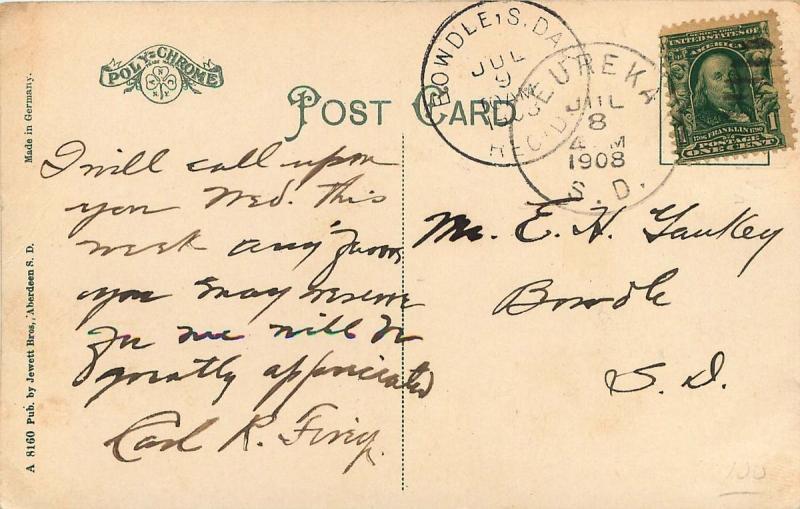 POLY-CHROME
POST CARD
BOWDLE, S. DAK.
JUL
9
REC'D.
EUREKA
JUL
8
4 PM
1908
S. D.
SERIES 1902
UNITED STATES OF
AMERICA
1706 FRANKLIN 1790
POSTAGE
1 ONE CENT 1
Made in Germany.
A 8160 Pub. by Jewett Bros., Aberdeen S. D.
I will call upon
you Wed. this
week any favors
you may reserve
for me will be
greatly appreciated
Carl R.
Mr. E. H. Gaukey
Bowdle
S. D.
100